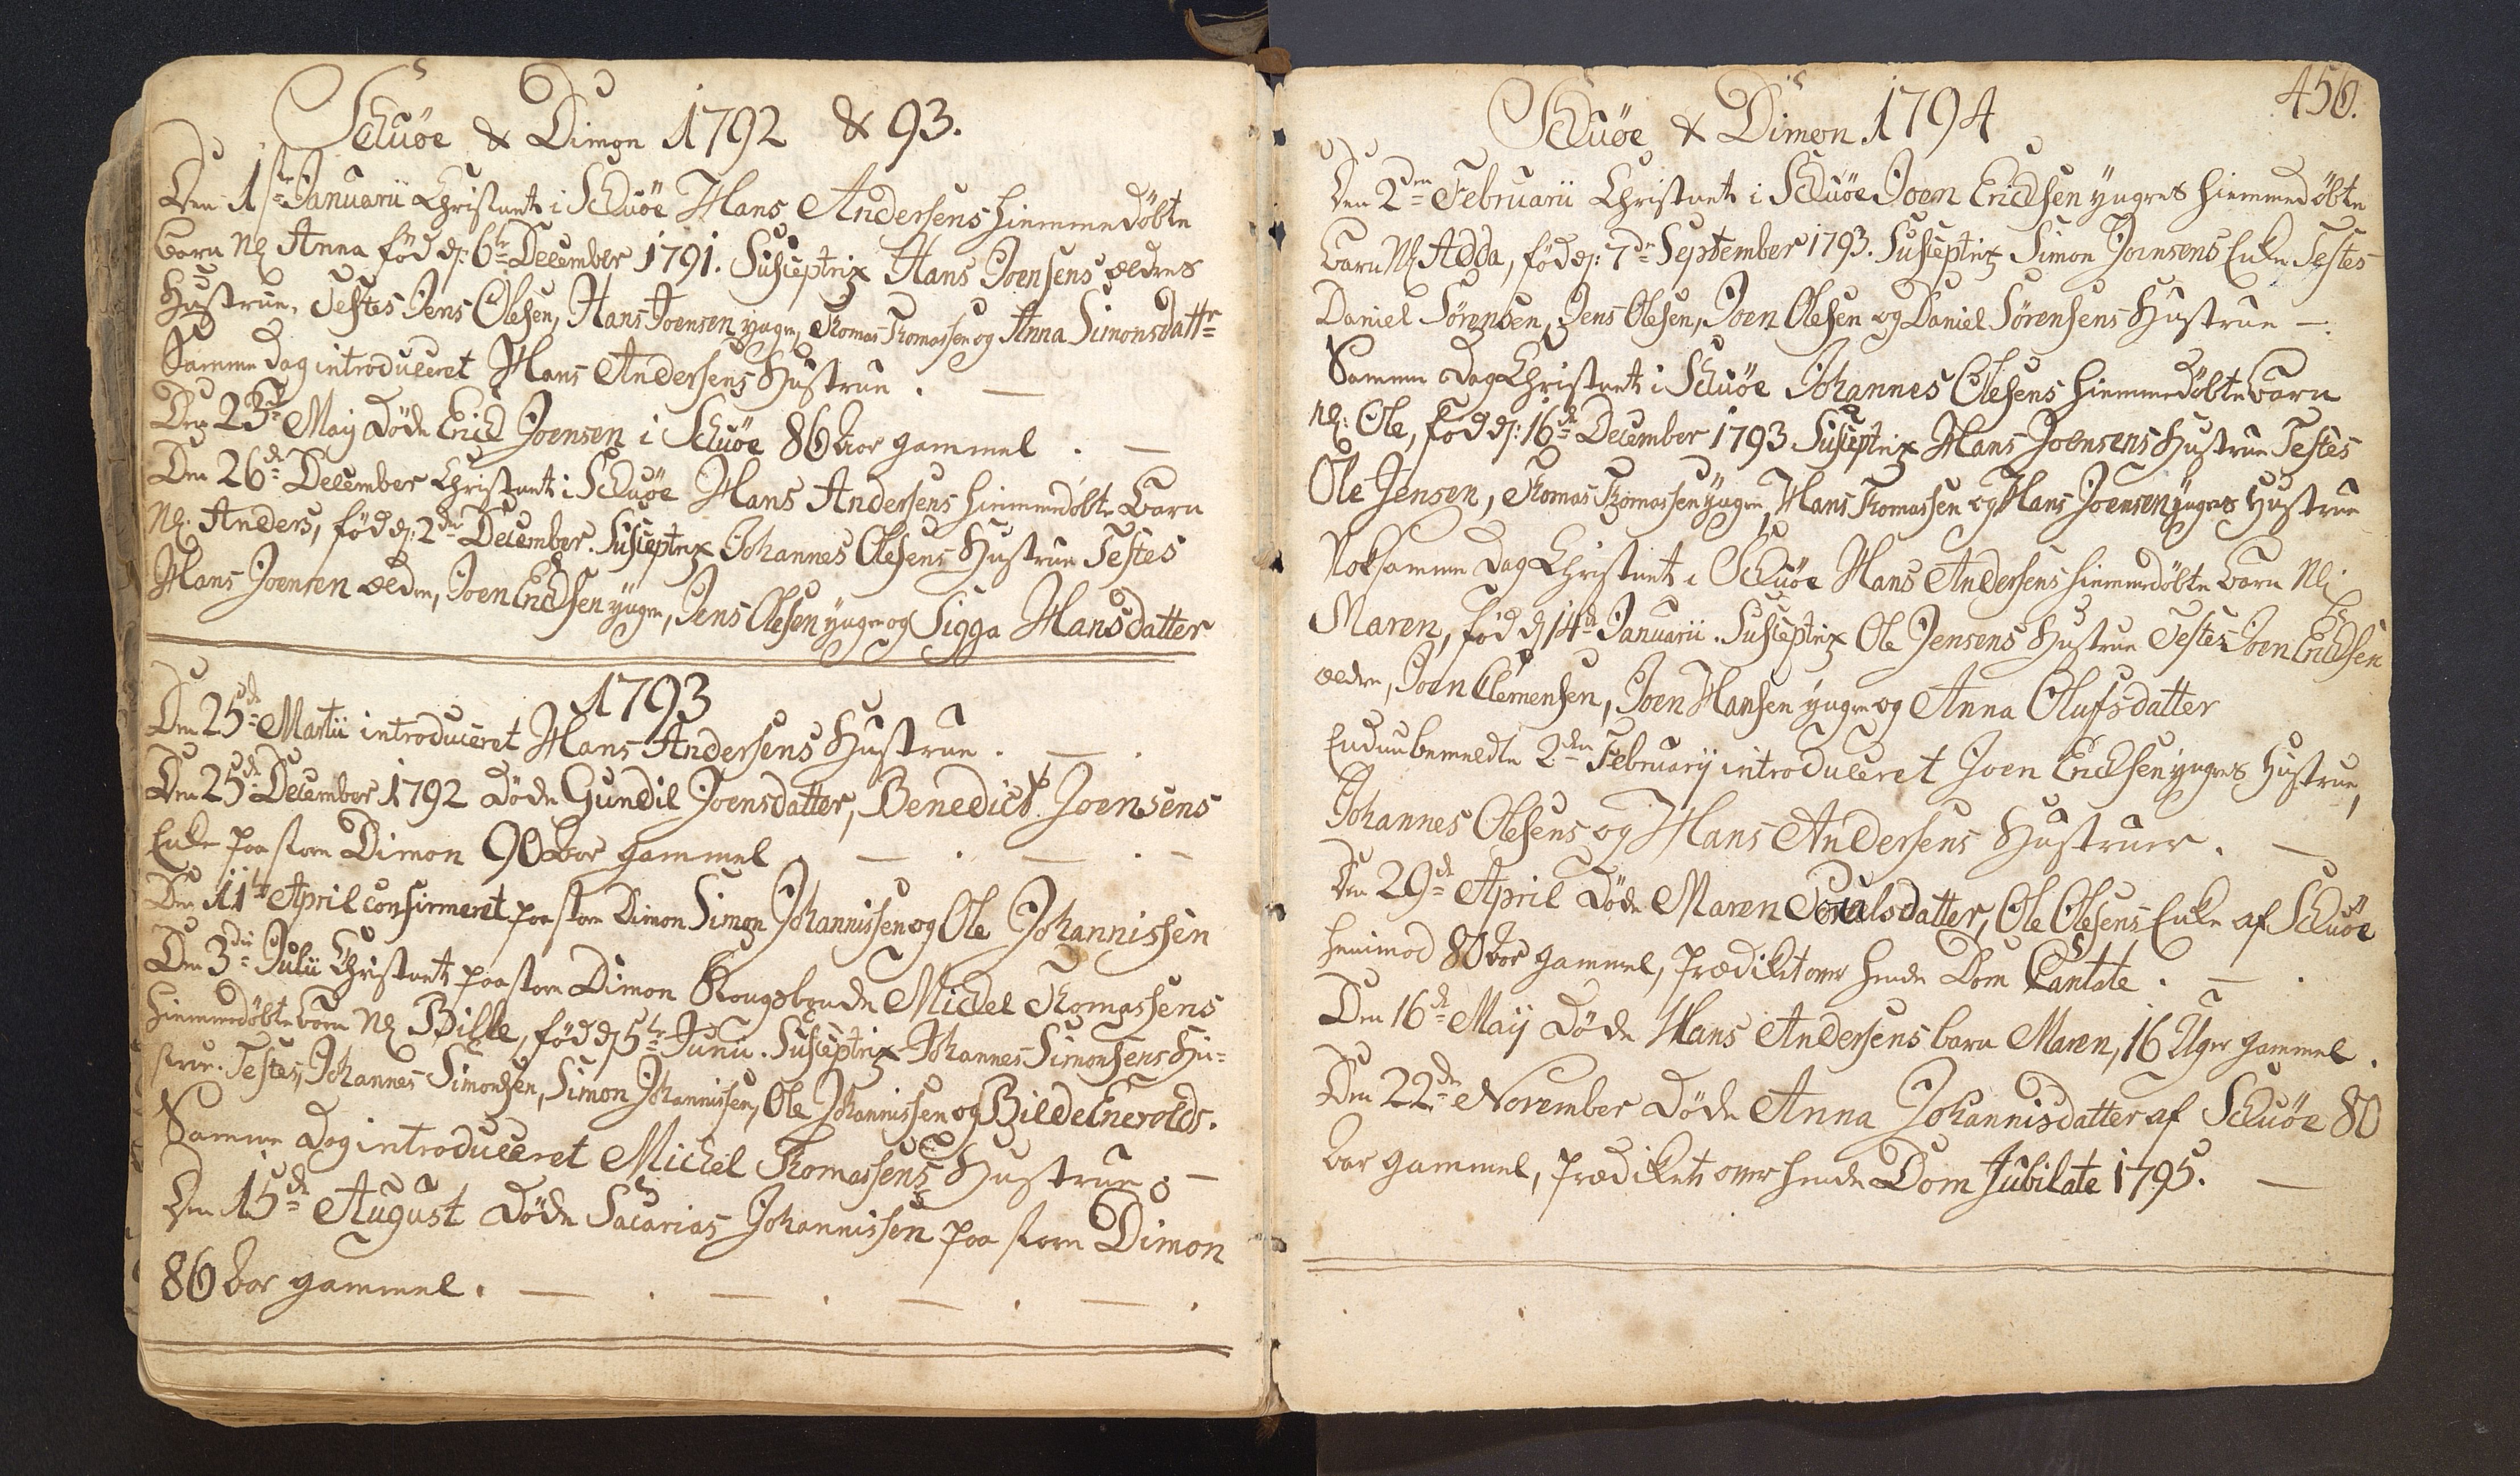 Schuøe & Dimon 1792 & 93.
Den 1ste Januarii Christnet i Schuøe Hans Andersens hiemmedøbte
barn Nl. Anna fød d: 6te December 1791. Susceptrix Hans Joensens ældres
Hustrue, Testes Jens Olesen, Hans Joensen yngre, Thomas Thomassen og Anna Simonsdattr
Samme dag introduceret Hans Andersens Hustrue. —
Den 23de Maij døde Erich Joensen i Schuøe 86 aar gammel. —
Den 26de December Christnet i Schuøe Hans Andersens hiemmedøbte barn
Nl. Anders, fød d: 2den December. Susceptrix Johannes Olesens Hustrue Testes
Hans Joensen ældre, Joen Erichsen yngre, Jens Olesen yngre og Sigga Hansdatter
1793
Den 25de Martii introduceret Hans Andersens Hustrue. — .
Den 25de December 1792 døde Gundil Joensdatter, Benedict Joensens
Enke paa store Dimon 90 aar gammel . — . — . —
Den 11te April confirmeret paa store Dimon Simon Johannissen og Ole Johannissen
Den 3die Julii Christnet paa store Dimon Kongsbonde Michel Thomassens
hiemmedøbte barn Nl. Bille, fød d 5te Junii. Susceptrix Johannes Simonsens Hu=
strue. Testes, Johannes Simonsen, Simon Johannissen, Ole Johannissen og Bilde Enevolds.
Samme Dag introduceret Michel Thomassens Hustrue. —
Den 15de August døde Sacarias Johannissen paa store Dimon
86 aar gammel. — . — . — . — .
456.
Schuøe & Dimon. 1794
Den 2den Februarii Christnet i Schuøe Joen Erichsen yngres hiemmedøbte
barn Nl. Adda, fød d: 7de September 1793. Susceptrix Simon Joensens Enke Testes
Daniel Sørensen, Jens Olesen, Joen Olesen og Daniel Sørensens Hustrue —.
Samme dag Christnet i Schuøe Johannes Olesens hiemmedøbte barn
Nl: Ole, fød d: 16de December 1793 Susceptrix Hans Joensens Hustrue Testes
Ole Jensen, Thomas Thomassen yngre, Hans Thomassen og Hans Joensen yngres Hustrue
Nok samme dag Christnet i Schuøe Hans Andersens hiemmedøbte barn Nl:
Maren, fød d 14de Januarii. Susceptrix Ole Jensens Hustrue Testes Joen Erichsen
ældre, Joen Clemensen, Joen Hansen yngre og Anna Olufsdatter
Endnu bemeldte 2den Februarij introduceret Joen Erichsen yngres Hustrue,
Johannes Olesens og Hans Andersens Hustruer. —
Den 29de April døde Maren Poulsdatter, Ole Olesens Enke af Schuøe
henimod 80 aar gammel, Prædiket over hende Dom Cantate. — .
Den 16de Maij døde Hans Andersens barn Maren, 16 Uger gammel.
Den 22de November døde Anna Johannisdatter af Schuøe 80
aar gammel, Prædiket over hende Dom Jubilate 1795. —